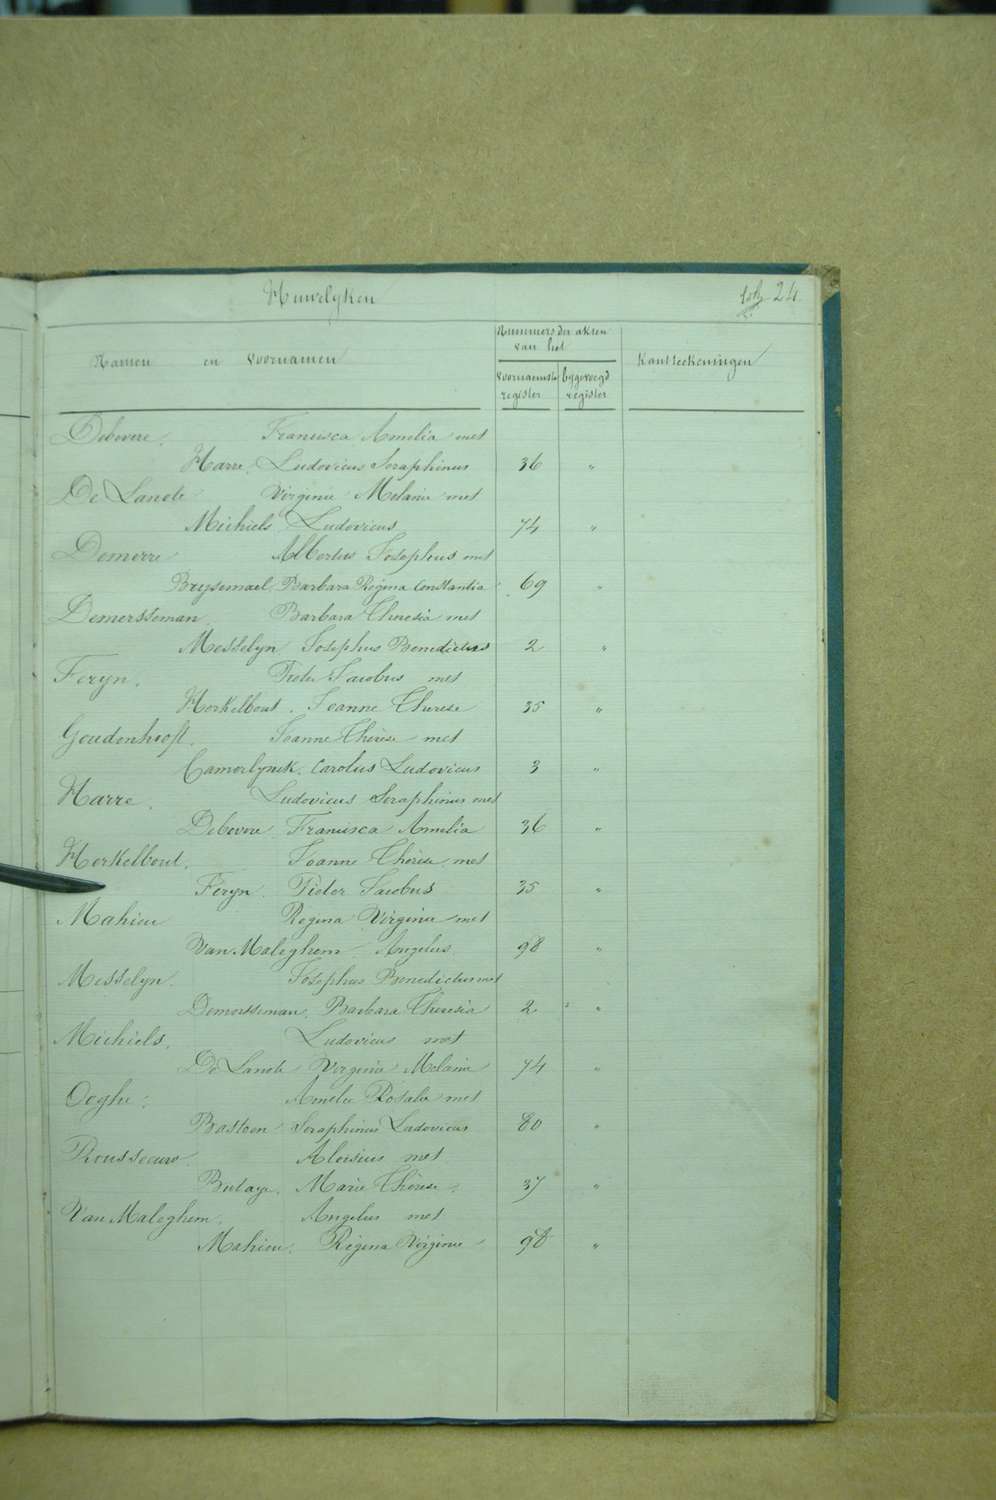 Huwelyken 24.
Namen en Voornamen
Nummers der akten
van het
voornaamste register
bygevoegd register
Kantteekeningen
Debovere. Francisca Amelia met
Harre. Ludovicus Seraphinus 36 "
De Lanote Virginie Melanie met
Michiels Ludovicus 74 "
Demerre Albertus Josephus met
Bruysemael Barbara Regina Constantia 69 "
Demersseman Barbara Theresia met
Messelyn Josephus Benedictus 2 "
Feryn. Pieter Jacobus met
Herkelbout. Joanne Therese 35 "
Goudenhooft. Joanne Therese met
Camerlynck. Carolus Ludovicus 3 "
Harre. Ludovicus Seraphinus met
Debovere Francisca Amelia 36 "
Herkelbout. Joanne Thérèse met
Feryn. Pieter Jacobus 35 "
Mahieu Regina Virginie met
Van Maleghem. Angelus. 98 "
Messelyn. Josephus Benedictus met
Demersseman. Barbara Theresia 2 "
Michiels. Ludovicus met
De Lanote Virginie Melanie 74 "
Ooghe. Amelie Rosalie met
Bastoen Seraphinus Ludovicus 80 "
Rousseeuw. Aloisius met
Butaye. Marie Thérèse. 37 "
Van Maleghem. Angelus met
Mahieu. Regina Virginie 98 "